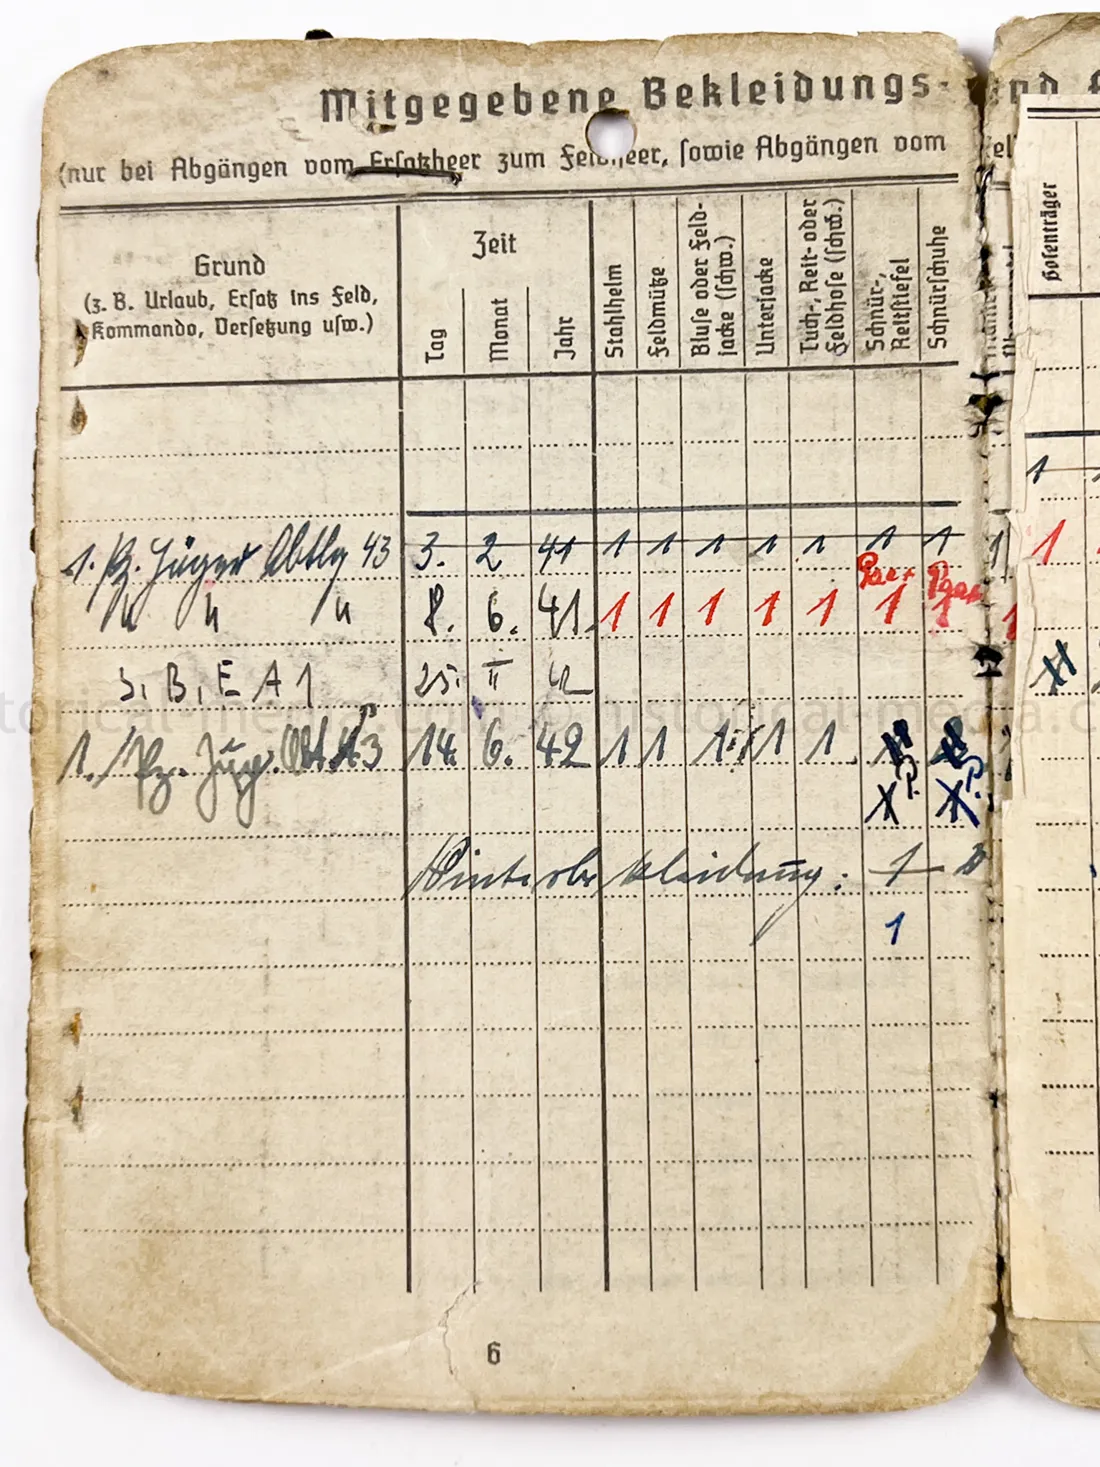 Mitgegebene Bekleidungs- und
(nur bei Abgängen vom Ersatzheer zum Feldheer, sowie Abgängen vom
Grund
(z. B. Urlaub, Ersatz ins Feld,
Kommando, Versetzung usw.)
Zeit
Tag
Monat
Jahr
Stahlhelm
Feldmütze
Bluse oder Feld-
jacke (schw.)
Unterjacke
Tuch-, Reit- oder
Feldhose (schw.)
Schnür-,
Reitstiefel
Schnürschuhe
Hosenträger
1. Pz. Jäger Abtlg 43 3. 2 41 1 1 1 1 1 1 1 1
Paar Paar
" " " 8. 6. 41. 1 1 1 1 1 1 1 1 1
S. B. E A 1 25. II 42
1. Pz. Jäg. Abt. 43 14. 6. 42 1 1 1 1 1
Winterbekleidung: 1
1
6
historical-media.com © historical-media